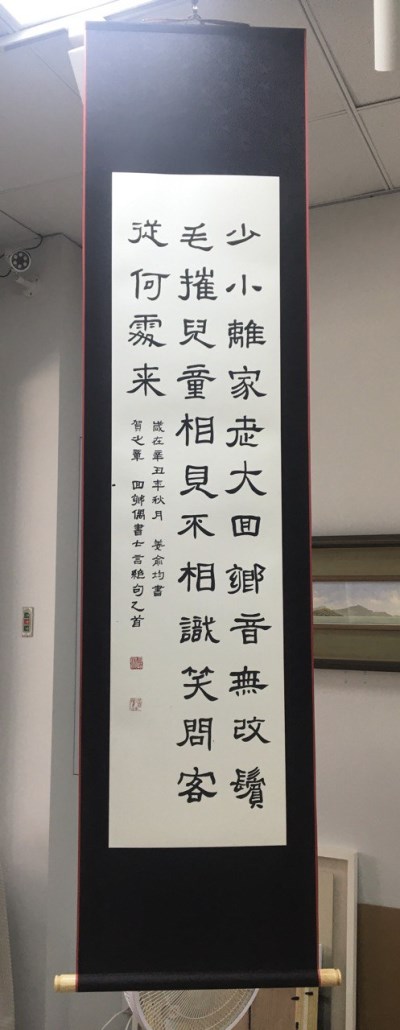 少小離家老大回鄉音無改鬢
毛摧兒童相見不相識笑問客
從何處来
歲在辛丑年秋月 俞均書
賀之章 回鄉偶書七言絕句乙首